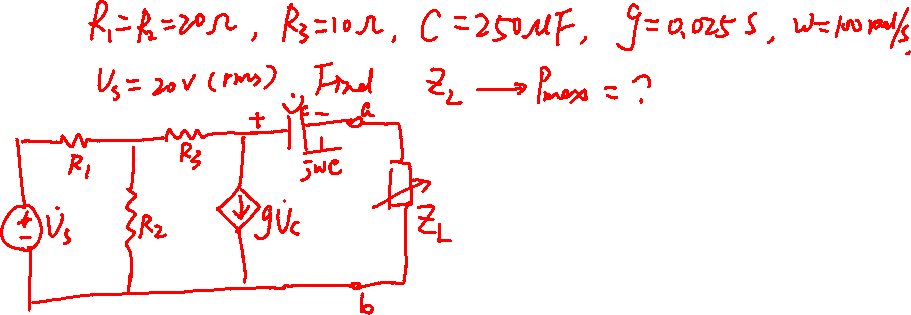 R₁=R₂=20Ω, R₃=10Ω, C=250μF, g=0.025 S, w=100 rad/s.
U̇s=20V(rms) Find ZL → Pmax = ?
+ U̇c - a
R₁ R₃ 1/jωC
+ - U̇s R₂ gU̇c ZL
b